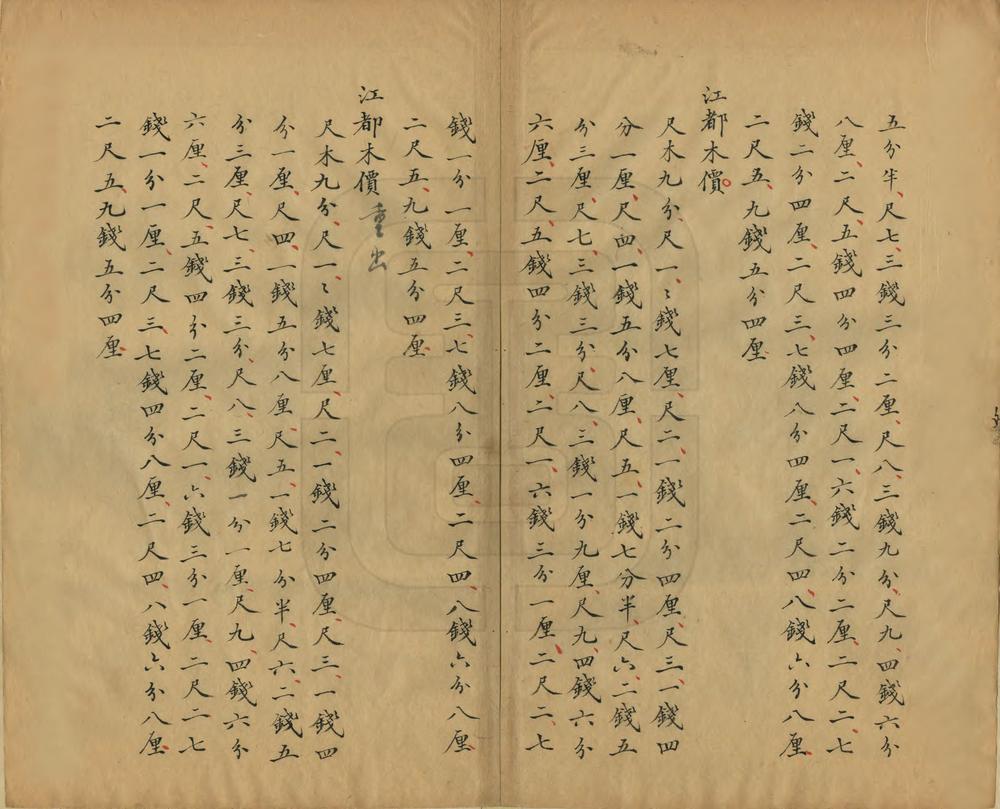 五分半、尺七、三錢三分二厘、尺八、三錢九分、尺九、四錢六分
八厘、二尺、五錢四分四厘、二尺一、六錢二分二厘、二尺二、七
錢二分四厘、二尺三、七錢八分四厘、二尺四、八錢六分八厘、
二尺五、九錢五分四厘
江都木價
尺木九分、尺一、〻錢七厘、尺二、一錢二分四厘、尺三、一錢四
分一厘、尺四、一錢五分八厘、尺五、一錢七分半、尺六、二錢五
分三厘、尺七、三錢三分、尺八、三錢一分九厘、尺九、四錢六分
六厘、二尺、五錢四分二厘、二尺一、六錢三分一厘、二尺二、七
錢一分一厘、二尺三、七錢八分四厘、二尺四、八錢六分八厘、
二尺五、九錢五分四厘、
江都木價 重出
尺木九分、尺一、〻錢七厘、尺二、一錢二分四厘、尺三、一錢四
分一厘、尺四、一錢五分八厘、尺五、一錢七分半、尺六、二錢五
分三厘、尺七、三錢三分、尺八、三錢一分一厘、尺九、四錢六分
六厘、二尺、五錢四分二厘、二尺一、六錢三分一厘、二尺二、七
錢一分一厘、二尺三、七錢四分八厘、二尺四、八錢六分八厘、
二尺五、九錢五分四厘、